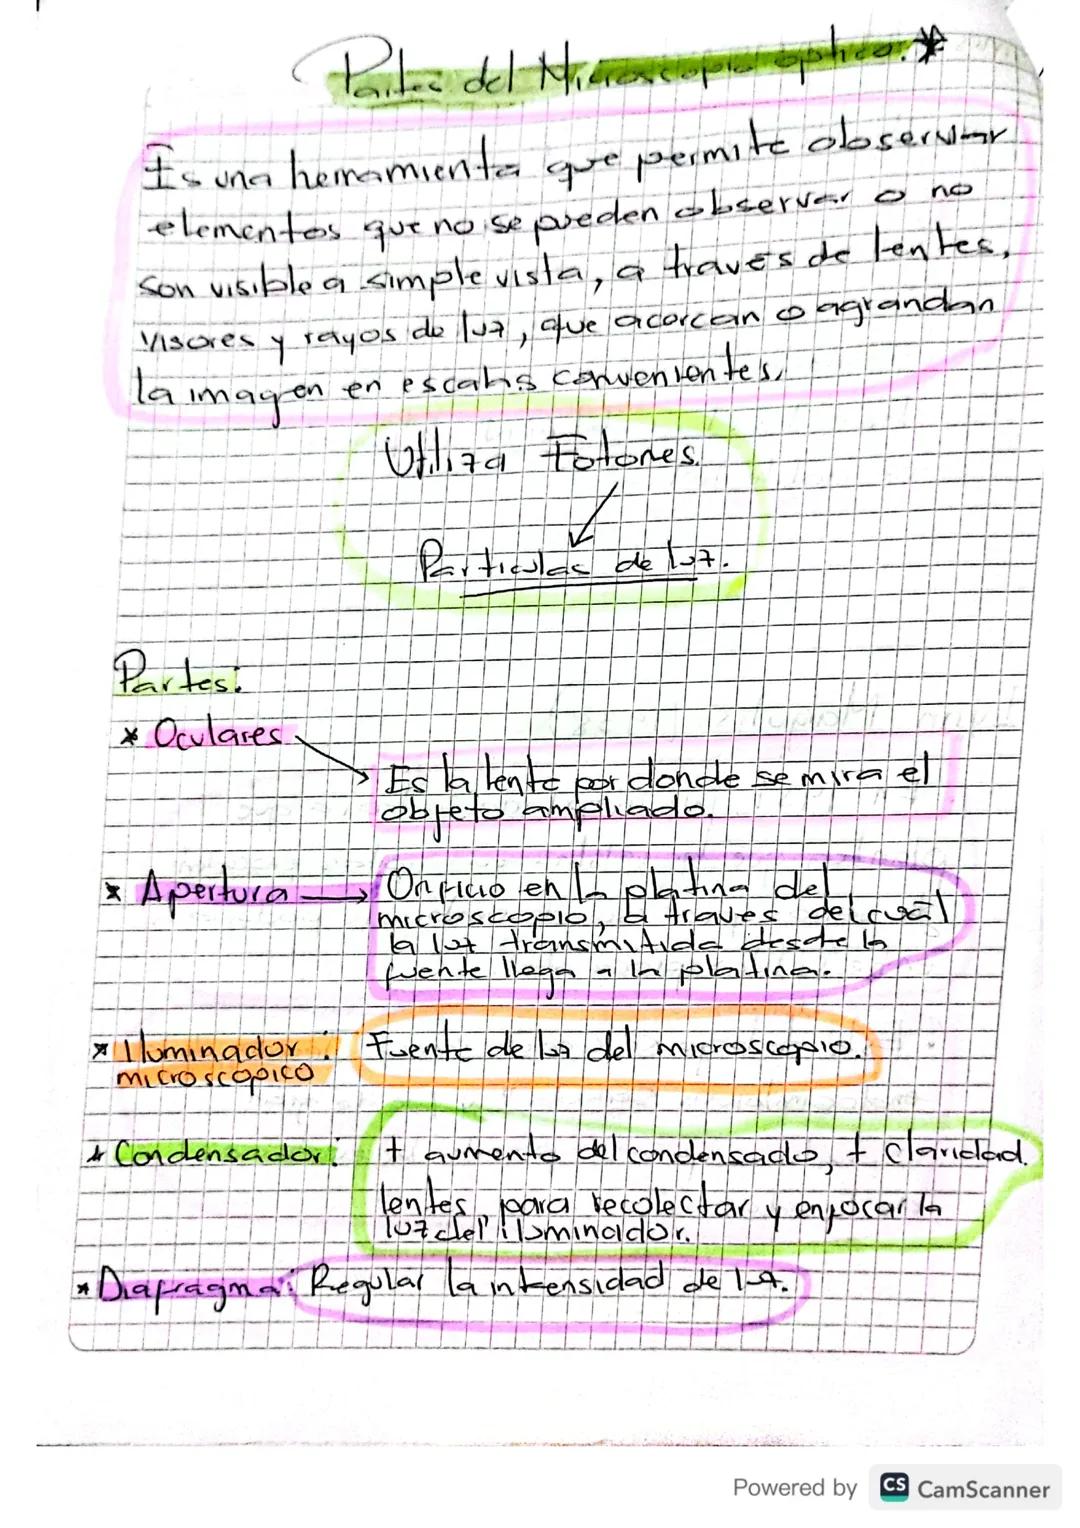 Partes del Microscopio óptico.*
Es una herramienta que permite observar
elementos que no se pueden observar o no
son visible a simple vista, a traves de lentes,
visores y rayos de luz, que acercan o agrandan
la imagen en escalas convenientes.
Utiliza Fotones.
Particulas de luz.
Partes:
* Oculares
Es la lente por donde se mira el
objeto ampliado.
* Apertura
Orificio en la platina del
microscopio, a traves del cuál
la luz transmitida desde la
fuente llega a la platina.
* Iluminador :
microscópico
Fuente de luz del microscopio.
* Condensador:
+ aumento del condensado, + claridad.
lentes para recolectar y enfocar la
luz del iluminador.
* Diafragma: Regular la intensidad de luz.
Powered by CS CamScanner